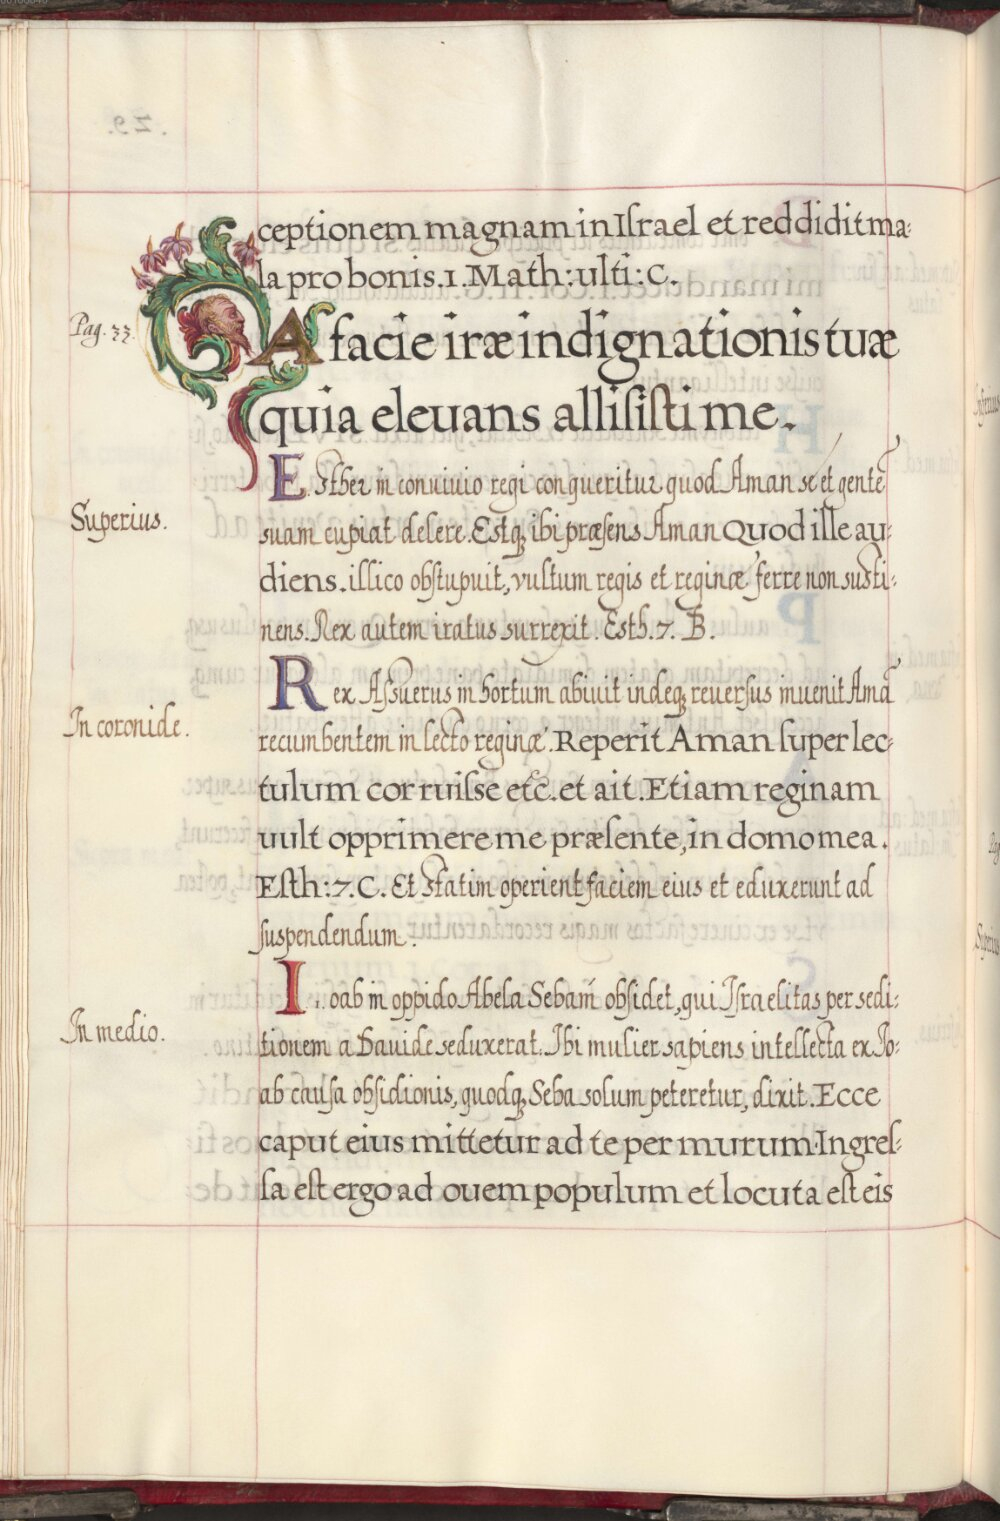 ceptionem magnam in Iſrael et reddidit ma:
la pro bonis. 1. Math: ulti: C.
Pag. 33.
A facie iræ indignationis tuæ
quia eleuans alliſiſti me.
Esther in conuiuio regi conqueritur quod Aman se et gentē
Superius.
suam cupiat delere. Estq₃ ibi præsens Aman Quod ille au:
diens. illico obstupuit, vultum regis et reginæ ferre non susti:
nens. Rex autem iratus surrexit. Esth. 7. B.
Rex Aſſuerus in hortum abiuit indeq₃ reuerſus inuenit Amā
In coronide.
recumbentem in lecto reginæ. Reperit Aman ſuper lec:
tulum corruiſse etc. et ait. Etiam reginam
uult opprimere me præſente, in domo mea.
Eſth: 7. C. Et statim operient faciem eius et eduxerunt ad
ſuspendendum.
Ioab in oppido Abela Sebam̄ obſidet, qui Iſraelitas per sedi:
In medio.
tionem a Dauide seduxerat. Ibi mulier sapiens intellecta ex Io:
ab cauſa obſidionis, quodq₃ Seba solum peteretur, dixit. Ecce
caput eius mittetur ad te per murum. Ingreſ:
ſa eſt ergo ad ouem populum et locuta eſt eis